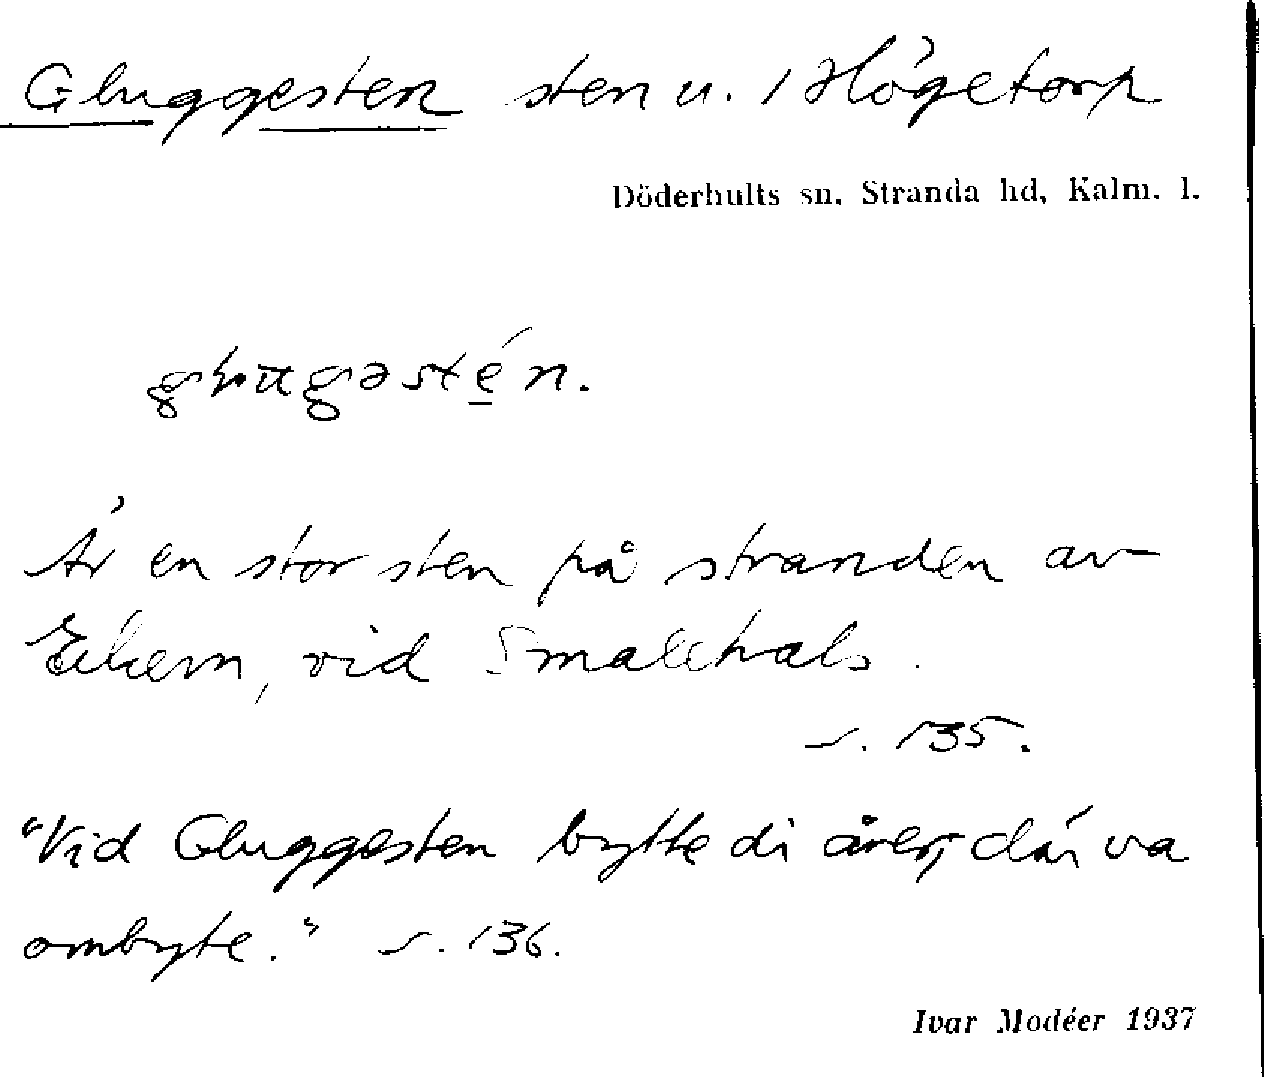 Gluggesten sten u. 1 Högetorp
Döderhults sn. Stranda hd, Kalm. l.
Är en stor sten på stranden av
Eckern, vid Smalehals.
s. 135.
"Vid Gluggesten bytte di årer, där va
ombyte." s. 136.
Ivar Modéer 1937